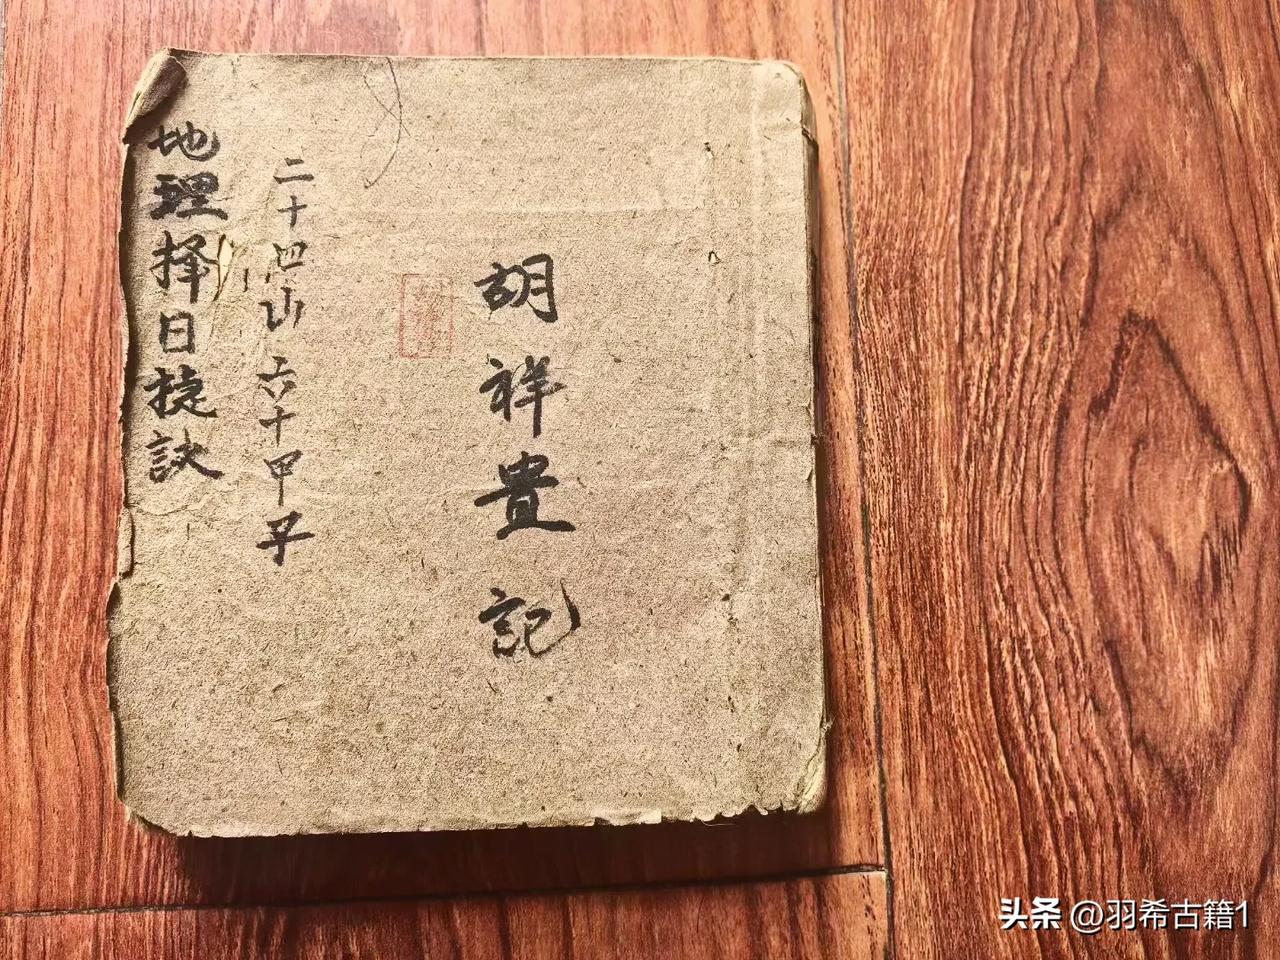 胡祥貴記
二十四山六十甲子
地理择日捷訣
头条 @羽希古籍1